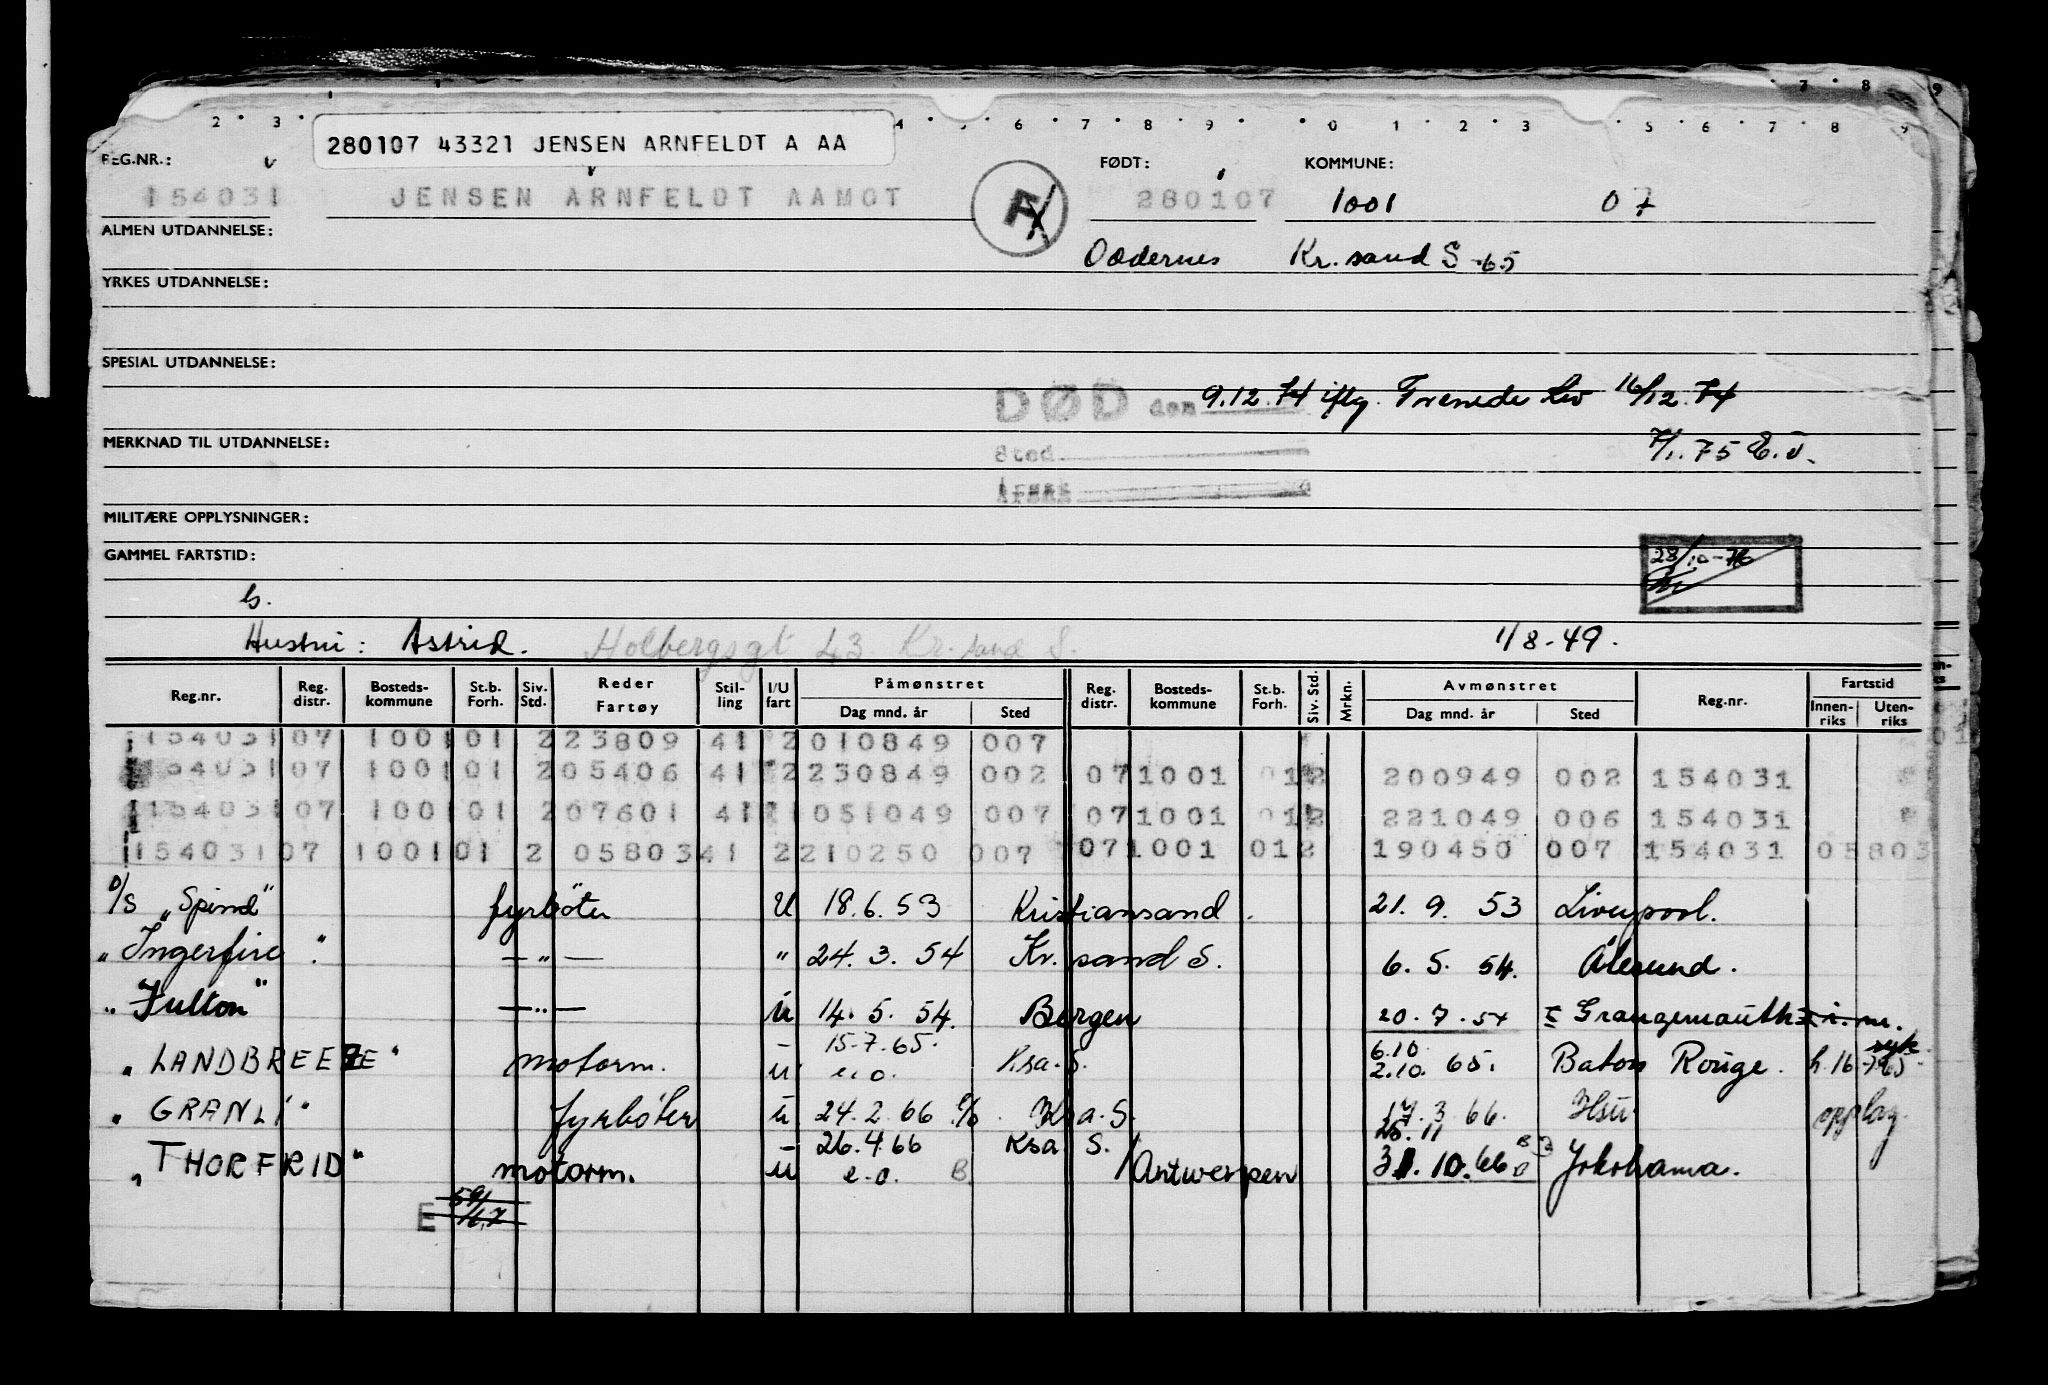 7 · 8 · 9
2 · 3 · 4 · 5 · 6 · 7 · 8 · 9 · · 0 1 · 2 · 3 5 · 6 · 7 · 8 9
280107 43321 JENSEN ARNFELDT A AA
REG.NR.: FØDT: KOMMUNE:
154031 JENSEN ARNFELDT AAMOT F 280107 1001 07
ALMEN UTDANNELSE:
Oddernes Kr. sand S -65
YRKES UTDANNELSE:
SPESIAL UTDANNELSE:
DØD den 9.12.74 iflg. 16/12.74
MERKNAD TIL UTDANNELSE:
Sted 7/1.75 E.J.
MILITÆRE OPPLYSNINGER:
GAMMEL FARTSTID:
28/10-76
G.
Hustru: Astrid. Holbergsgt 43 Kr. sand S. 1/8-49.
Reg.nr. Reg. distr. Bosteds-kommune St.b. Forh. Siv. Std. Reder Fartøy Stil-ling I/U fart Påmønstret Dag mnd. år Sted Reg. distr. Bosteds-kommune St.b. Forh. Siv. Std. Mrkn. Avmønstret Dag mnd. år Sted Reg.nr. Fartstid Innen-riks Uten-riks
154031 07 1001 01 2 23809 41 2 010849 007
154031 07 1001 01 2 05406 41 2 230849 002 07 1001 01 2 200949 002 154031
154031 07 1001 01 2 07601 41 1 051049 007 07 1001 01 2 221049 006 154031
154031 07 1001 01 2 05803 41 2 210250 007 07 1001 01 2 190450 007 154031 05803
D/S „Spind" fyrbøter U 18.6.53 Kristiansand. 21.9.53 Liverpool.
„Ingerfire" — " — " 24.3.54 Kr. sand S. 6.5.54. Ålesund.
„Fulton" — " — U 14.5.54. Bergen 20.7.54 Grangemouth
„LANDBREEZE" motorm. U 15.7.65. e.o. Ksa. S. 6.10 2.10. 65. Baton Rouge. h. 16 -7.65 syk
„GRANLI" fyrbøter U 24.2.66 Ksa. S. 17.3.66. opplag.
„THORFRID" motorm. U 26.4.66 e.o. B Ksa S. / Antwerpen 25.11 31.10.66 Yokohama.
E